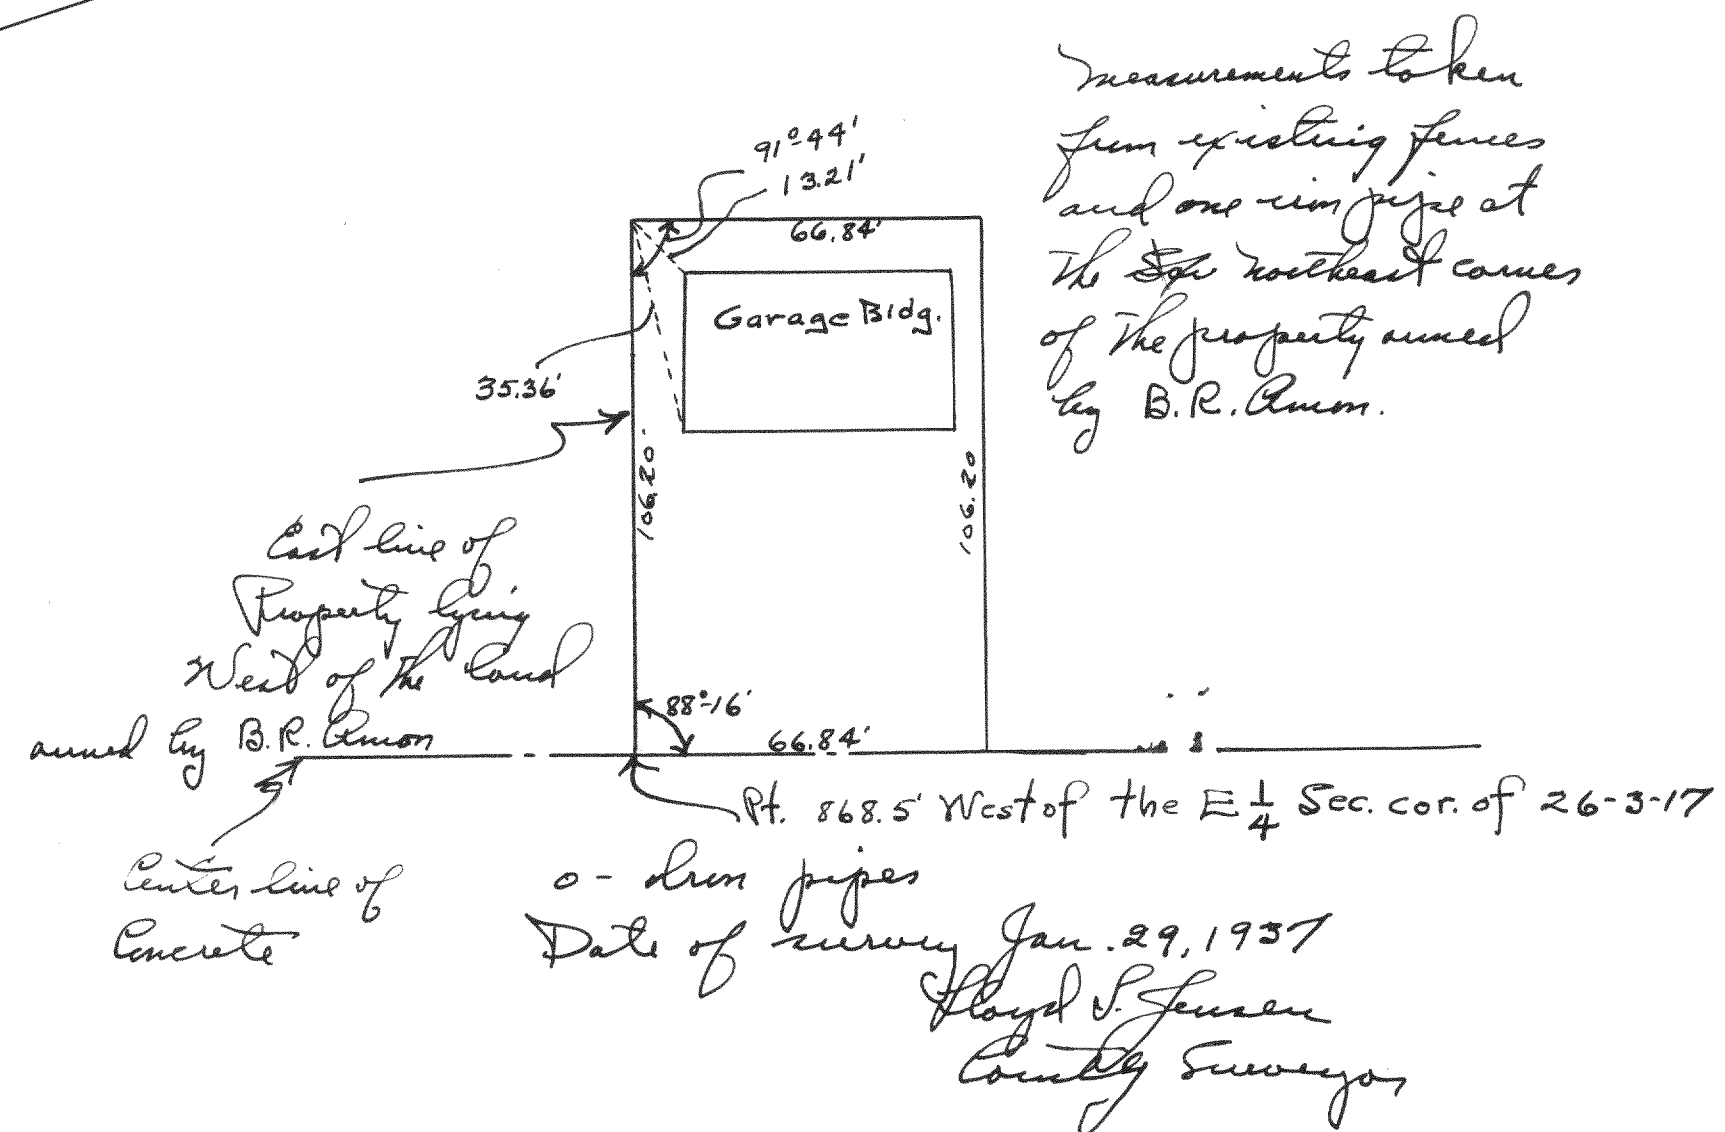 Measurements taken
from existing fences
and one iron pipe at
the northeast corner
of the property owned
by B.R. Amon.
91°-44'
13.21'
66.84'
Garage Bldg.
35.36'
106.20
106.20
East line of
Property lying
West of the land
owned by B.R. Amon
88°-16'
66.84'
Pt. 868.5' West of the E 1/4 Sec. cor. of 26-3-17
Center line of
Concrete
o - Iron pipes
Date of survey Jan. 29, 1937
Floyd S. Jensen
County Surveyor